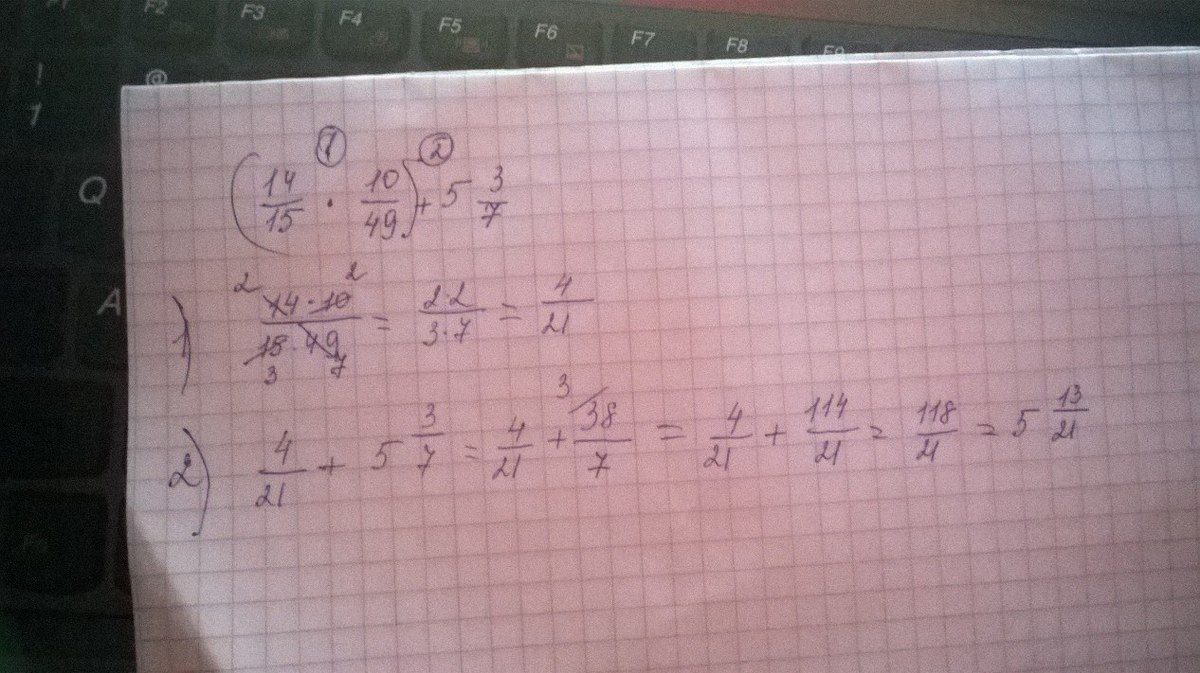 F1 F2 F3 F4 F5 F6 F7 F8 F9
! @
1
Q
A
① ②
(14/15 · 10/49) + 5 3/7
1) 2 14 · 10 2 / 15 · 49 3 7 = 2·2/3·7 = 4/21
2) 4/21 + 5 3/7 = 4/21 + 3 38/7 = 4/21 + 114/21 = 118/21 = 5 13/21